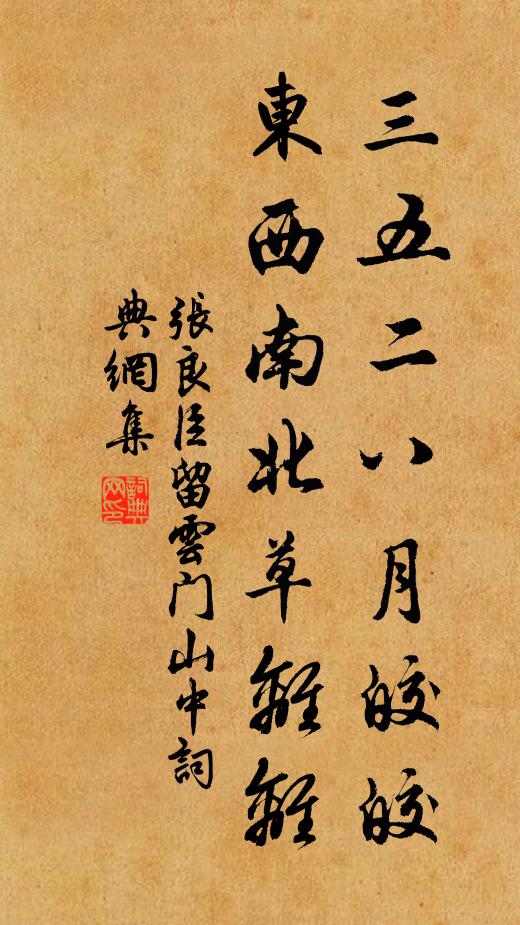 三五二八月皎皎
東西南北草離離
張良臣留雲門山中詞
典網集
詞典
網印